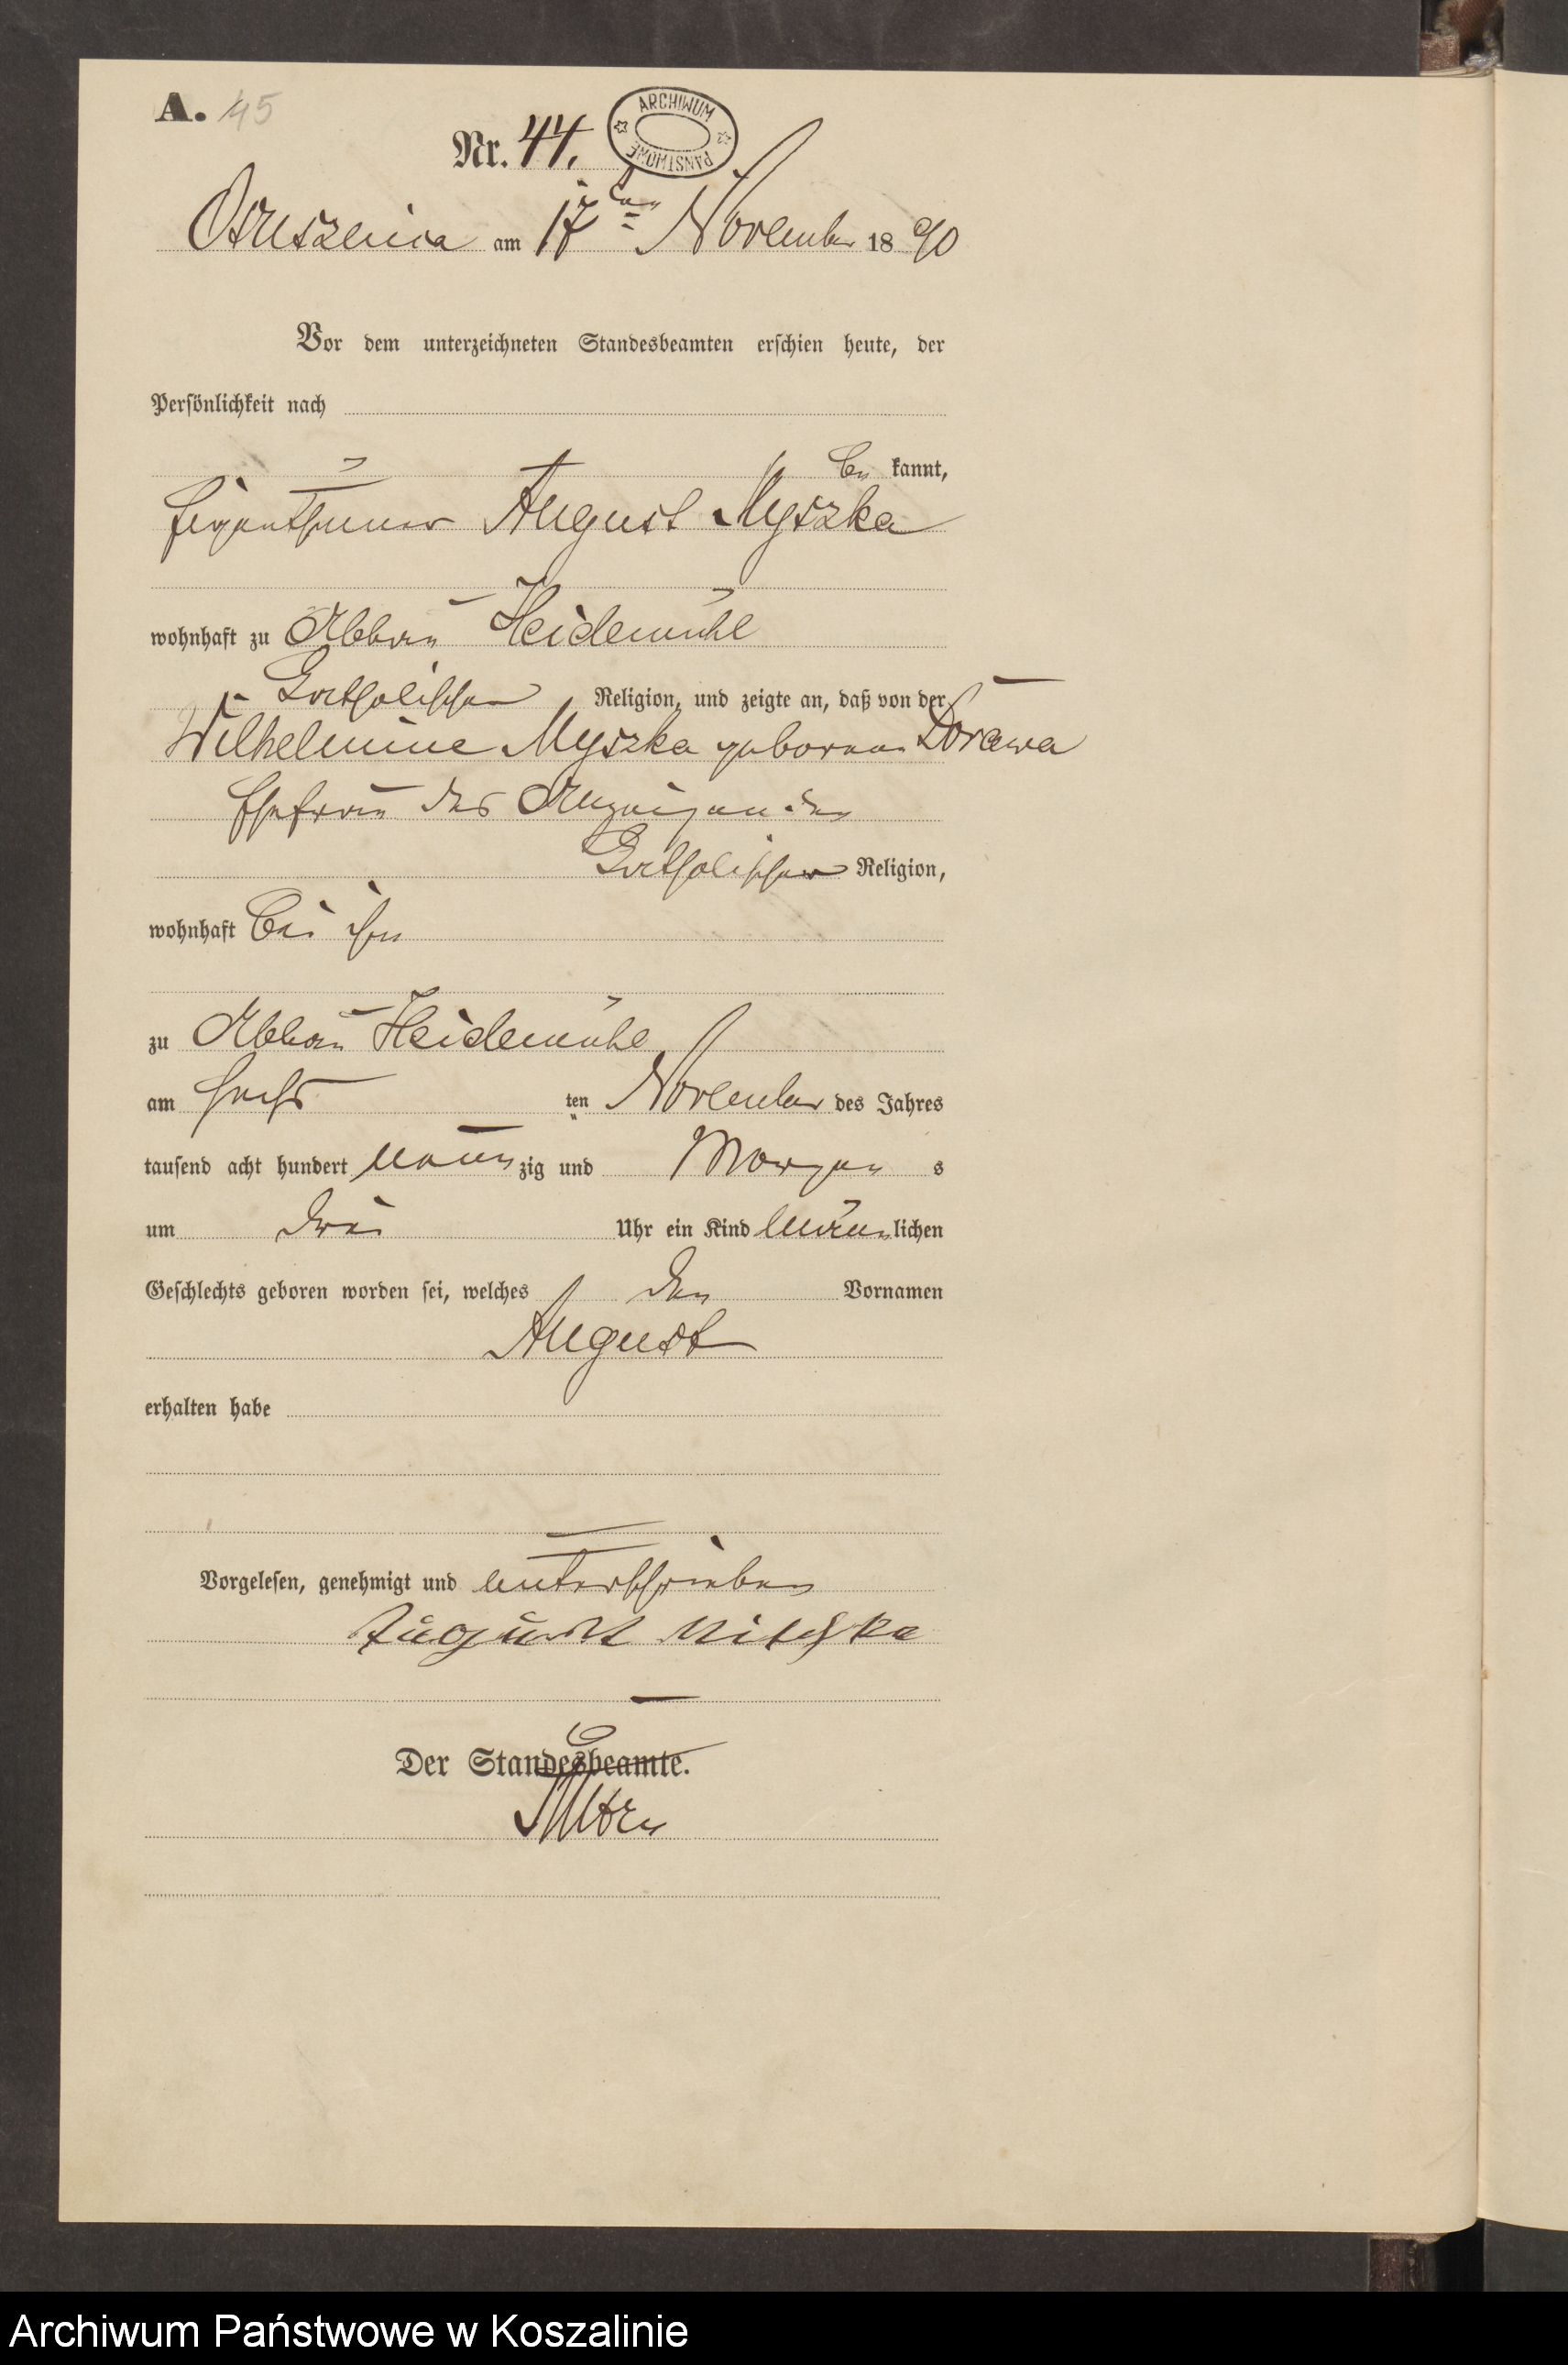 A. 45
Nr. 44.
ARCHIWUM PAŃSTWOWE
Ostruszenica am 17ten November 1890
Vor dem unterzeichneten Standesbeamten erschien heute, der
Persönlichkeit nach
be kannt,
Eigenthümer August Myszka
wohnhaft zu Abbau Heidemühl
katholischer Religion, und zeigte an, daß von der
Wilhelmine Myszka geborenen Dorawa
Ehefrau des Anzeigenden
katholischer Religion,
wohnhaft bei ihm
zu Abbau Heidemühl
am sechs ten November des Jahres
tausend acht hundert neun zig und Morgen s
um drei Uhr ein Kind männ lichen
Geschlechts geboren worden sei, welches den Vornamen
August
erhalten habe
Vorgelesen, genehmigt und unterschrieben
August Mischka
Der Standesbeamte.
Archiwum Państwowe w Koszalinie